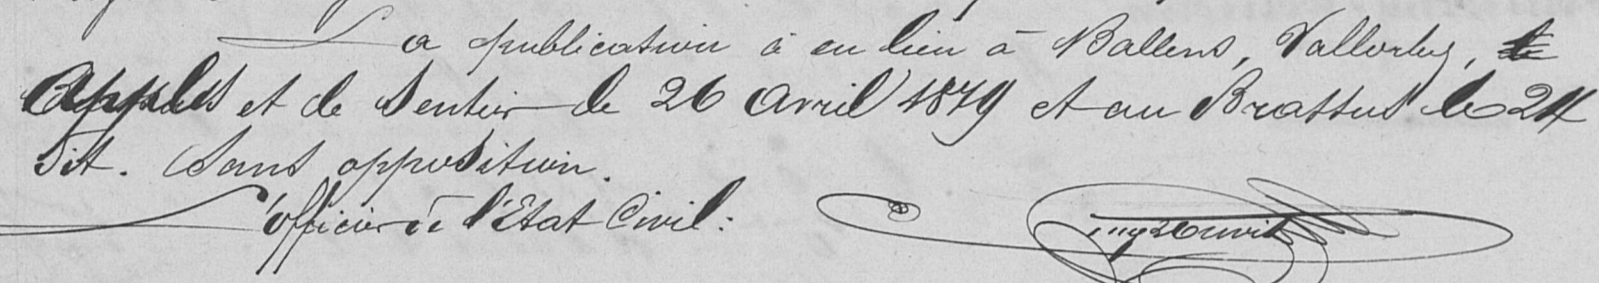 La publication à eu lieu à Ballens, Vallorbes,
Apples et de Sentier le 26 Avril 1879 et au Brassus le 24
dit. Sans opposition.
L'officier de l'Etat Civil: